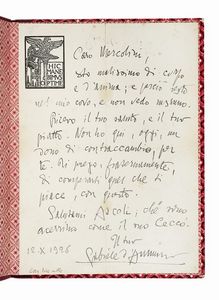 HIC
MANE
BIMVS
OPTIME
Caro Marcolini,
sto malissimo di corpo
e d'anima; e perciò resto
nel mio covo, e non vedo nessuno.
Ricevo il tuo saluto, e il tuo
piatto. Non ho qui, oggi, un
dono di contraccambio, per
te. Ti prego, fraternamente,
di comperarti quel che ti
piace, con questo.
Salutami Ascoli, che
come il mio Cecco.
Il tuo
12.X.1926
Gabriele d'Annunzio